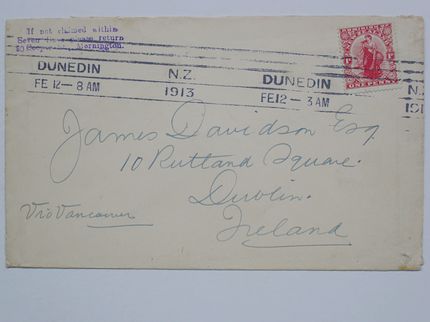 If not claimed within
Seven days please return
Mornington.
DUNEDIN N.Z. DUNEDIN N.
FE 12-8 AM 1913 FE12-3AM 191
ONE PENNY
James Davidson Esq
10 Rutland Square.
Dublin.
Via Vancouver
Ireland